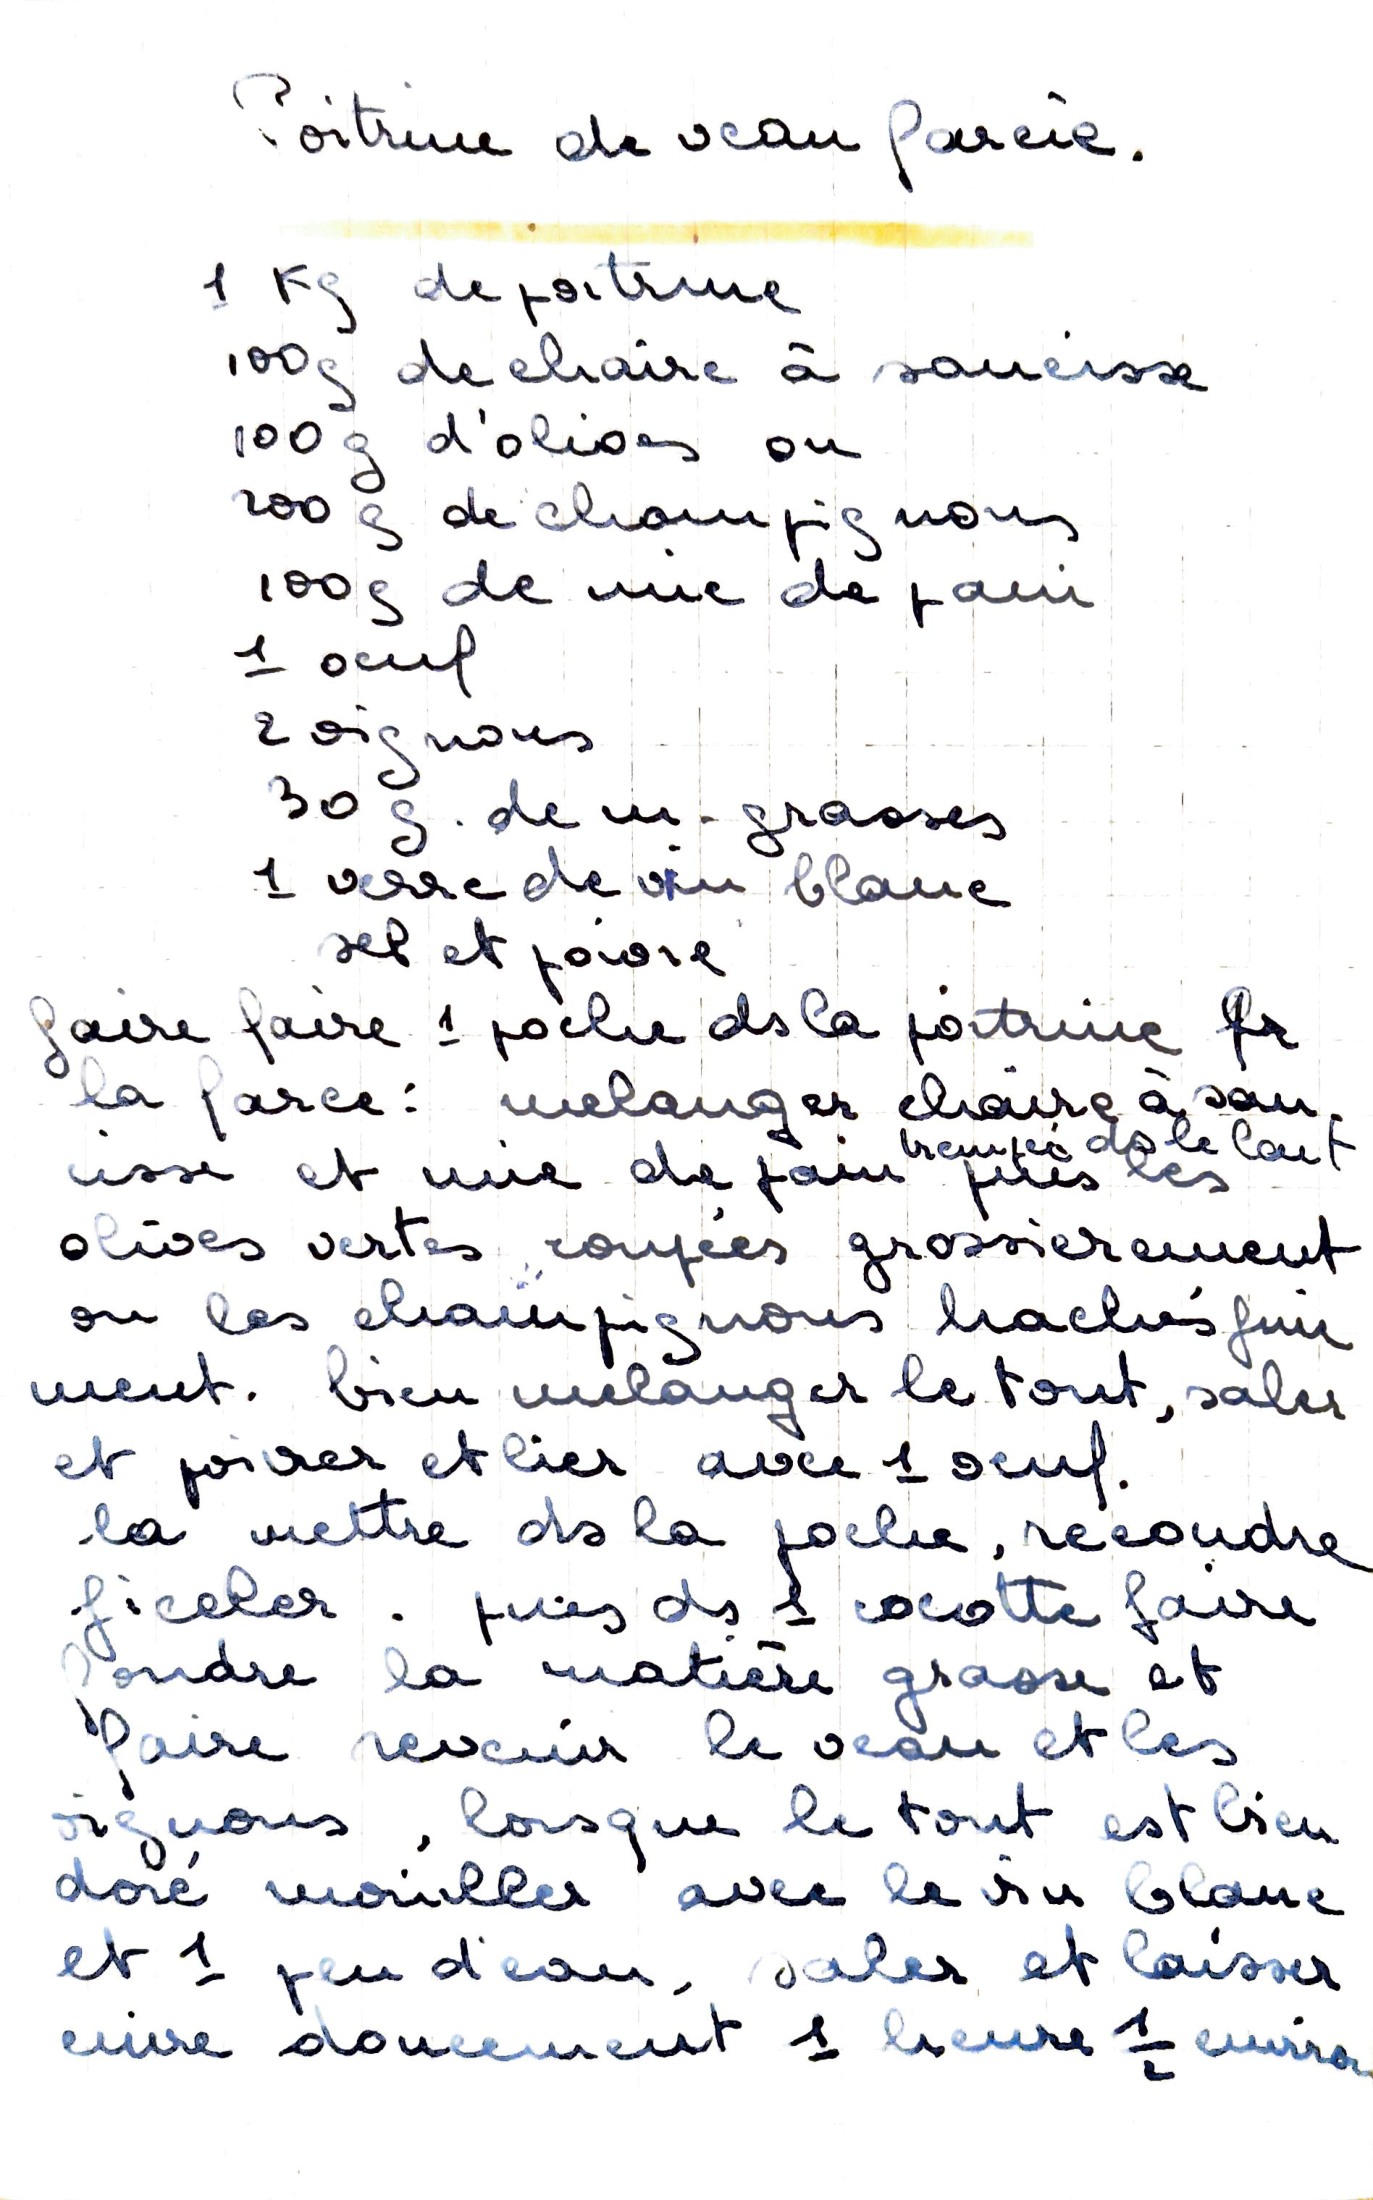 Poitrine de veau farcie.
1 Kg de poitrine
100g de chaire à saucisse
100 g d'olives ou
200 g de champignons
100g de mie de pain
1 oeuf
2 oignons
30 g. de m. grasses
1 verre de vin blanc
sel et poivre
faire faire 1 poche ds la poitrine pr
la farce : melanger chaire à sau.
cisse et mie de pain trempée ds le lait puis les
olives vertes coupées grossierement
ou les champignons hachés fine
ment. bien melanger le tout, saler
et poivrer et lier avec 1 oeuf.
la mettre ds la poche, recoudre
ficeler. puis ds 1 cocotte faire
fondre la matière grasse et
faire revenir le veau et les
oignons, lorsque le tout est bien
doré mouiller avec le vin blanc
et 1 peu d'eau, saler et laisser
cuire doucement 1 heure 1/2 environ